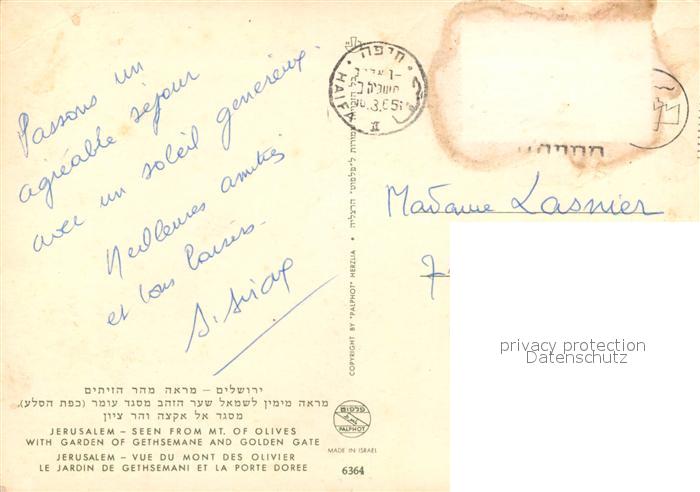 Passons un
agréable séjour
avec un soleil généreux.
Meilleures amitiés
et bons baisers.
חיפה
HAIFA
II
Madame Lasnier
privacy protection
Datenschutz
COPYRIGHT BY "PALPHOT" HERZLIA •
ירושלים – מראה מהר הזיתים
מראה מימין לשמאל שער הזהב מסגד עומר (כפת הסלע),
מסגד אל אקצה והר ציון
JERUSALEM – SEEN FROM MT. OF OLIVES
WITH GARDEN OF GETHSEMANE AND GOLDEN GATE
JERUSALEM – VUE DU MONT DES OLIVIER
LE JARDIN DE GETHSEMANI ET LA PORTE DOREE
פלפוט
PALPHOT
MADE IN ISRAEL
6364